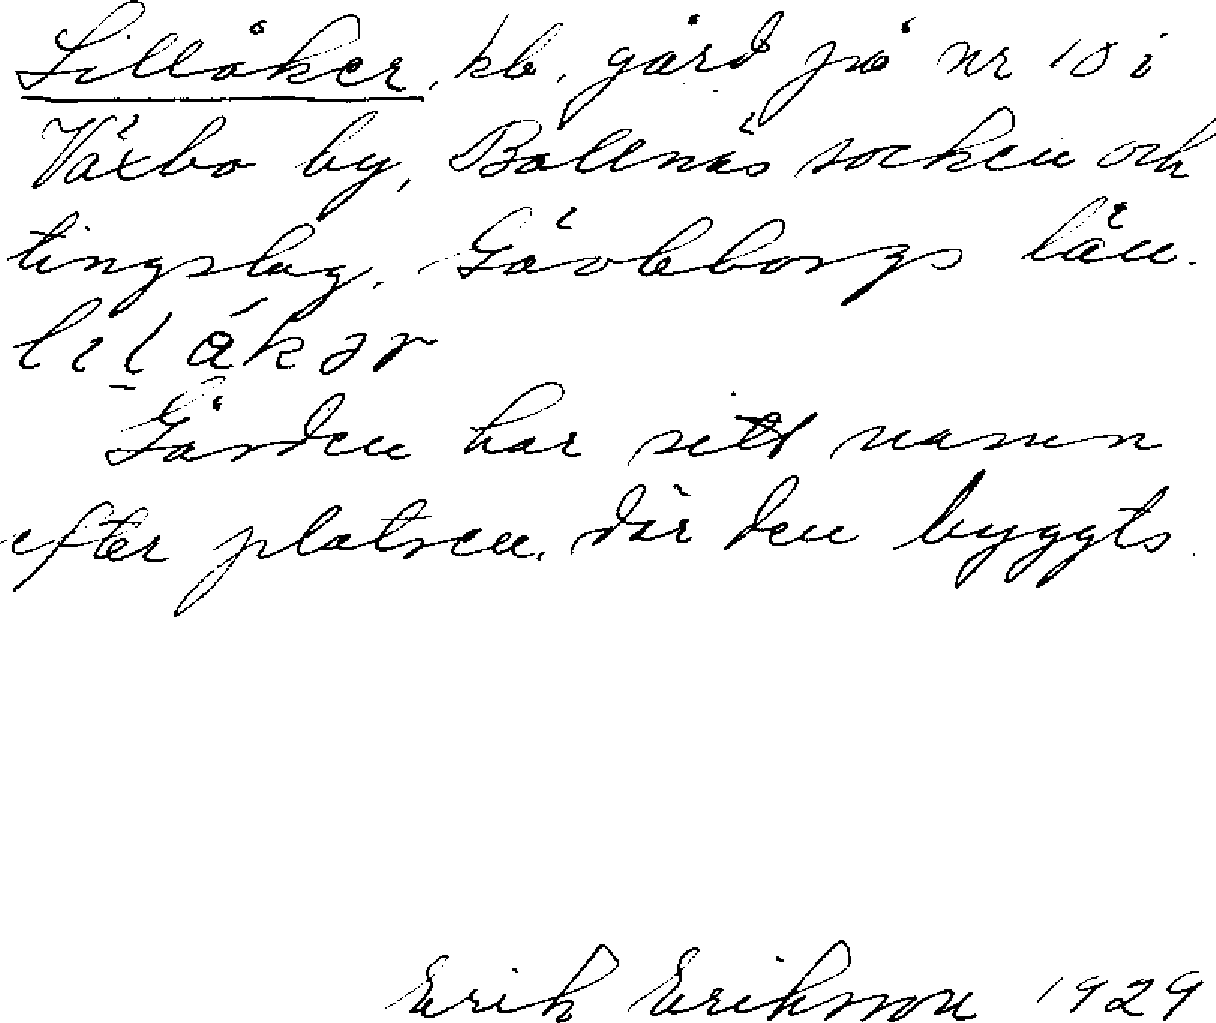 Lillåker, kb. gård på nr 10 i
Växbo by, Bollnäs socken och
tingslag, Gävleborgs län.
lıl̠åkər
Gården har sitt namn
efter platsen, där den byggts.
Erik Eriksson 1929